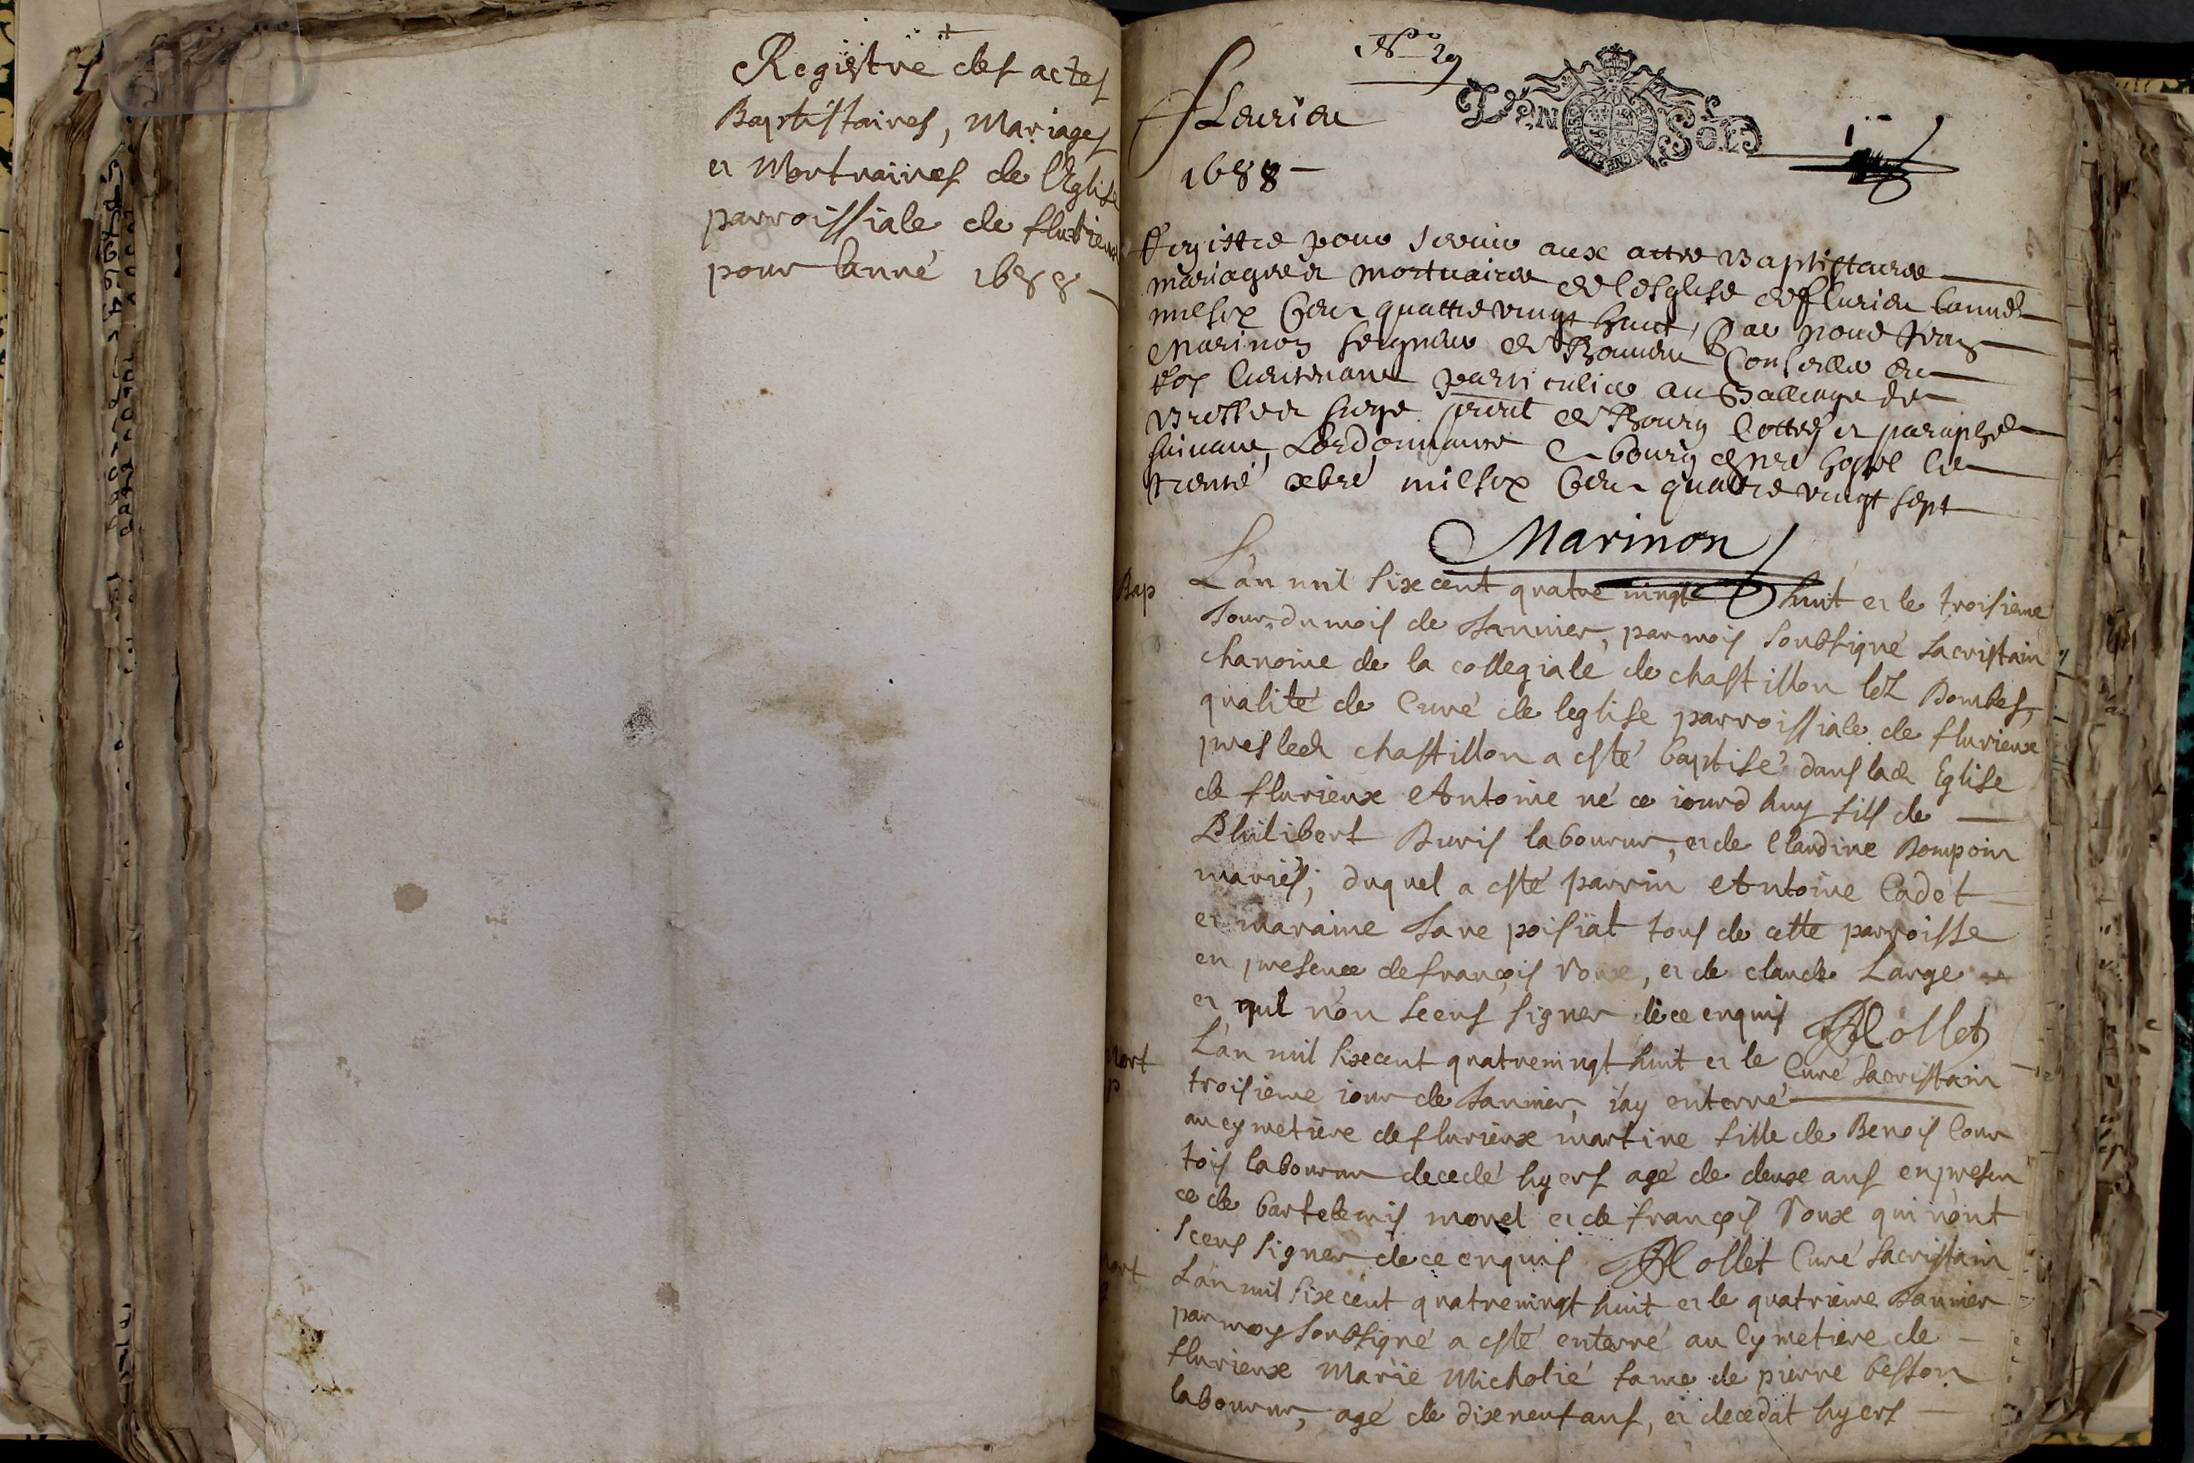 Registre des actes
Baptistaires, Mariages
et Mortuaires de l'Eglise
parroissiale de flurieux
pour l'anné 1688
No 29
fleurieu
1688
DEN SOLS
1
Registre pour servir aux actes Baptistaires
mariages et mortuaires de l'esglise de flurieu l'année
mil six cent quattre vingt huict, par nous Jean
Marinon seigneur de Conseiller du
Roy lieutenant particulier au Balliage de
Bresse et siege pnt de Bourg cottés et paraphés
suivant l'ordonnance a bourg dans nre hostel le
trente xbre mil six cent quattre vingt sept
Marinon
Bap
L'an mil sixe cent quatre vingt huit et le troisieme
Jour du mois de Janvier, par moy soubsigné sacristain
chanoine de la collegiale de chastillon lez Dombes,
qualité de Curé de leglise parroissiale de flurieux
pres led chastillon a esté baptisé dans lad Eglise
de flurieux Antoine né ce iourd huy fils de
Philibert Buris laboureur, et de Claudine Bompoin
mariés; duquel a esté parrin Antoine Cadet
et maraine Jane poisiat tous de cette parroisse
en presence de françois roux, et de claude Large
et qui n'on sceus signer de ce enquis Rollet
Curé sacristain
Mort
p
L'an mil sixe cent quatrevingt huit et le
troisieme iour de Janvier, i'ay enterré
au cymetiere de flurieux martine fille de Benois Cour
tois laboureur decedé hyers agé de deuxe ans en presen
ce de bartelemis morel et de françois Roux qui n'ont
sceus signer de ce enquis Rollet Curé Sacristain
mort
L'an mil sixe cent quatrevingt huit et le quatrieme Janvier
par moy soubsigné a esté enterré au Cymetiere de
flurieux Marie Micholié fame de pierre besson
laboureur, agé de dixe neuf ans, et decedat hyers